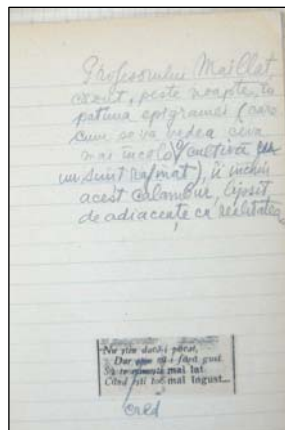 Profesorului Maillat,
căzut, peste noapte, în
patima epigramei (care
cum se va vedea ceva
mai încolo, cultivă
un sunt ra(mat), îi închin
acest calambur, lipsit
de adiacențe cu realitatea
Nu știm dacă-i păcat,
Dar știm că-i fără gust
Să te numești mai lat
Când ești tot mai îngust...
cred